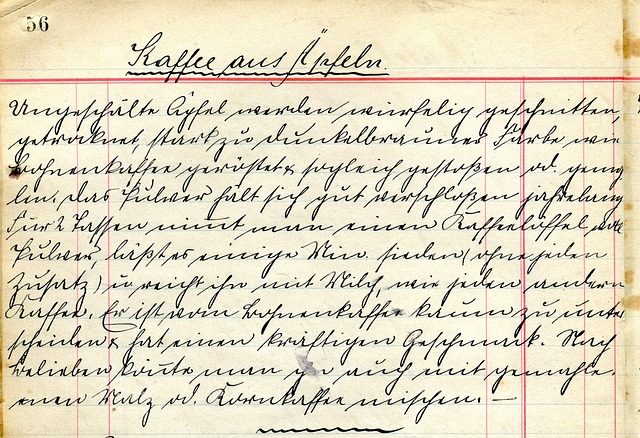 56
Kaffee aus Äpfeln.
Ungeschälte Äpfel werden würfelig geschnitten,
getroknet, stark zu dunkelbrauner Farbe wie
Bohnenkaffee geröstet & sogleich gestoßen od. gemah
len. Das Pulver hält sich gut verschloßen jahrelang
Für 2 Tassen nimt man einen Kaffeelöffel voll
Pulver, läßt es einige Min. sieden (ohne jeden
Zusatz) u. reicht ihn mit Milch, wie jeden andern
Kaffee. Er ist vom Bohnenkaffee kaum zu unter
scheiden & hat einen kräftigen Geschmack. Nach
Belieben könte man ihn auch mit gemahle-
enen Malz od. Kornkaffee mischen. —